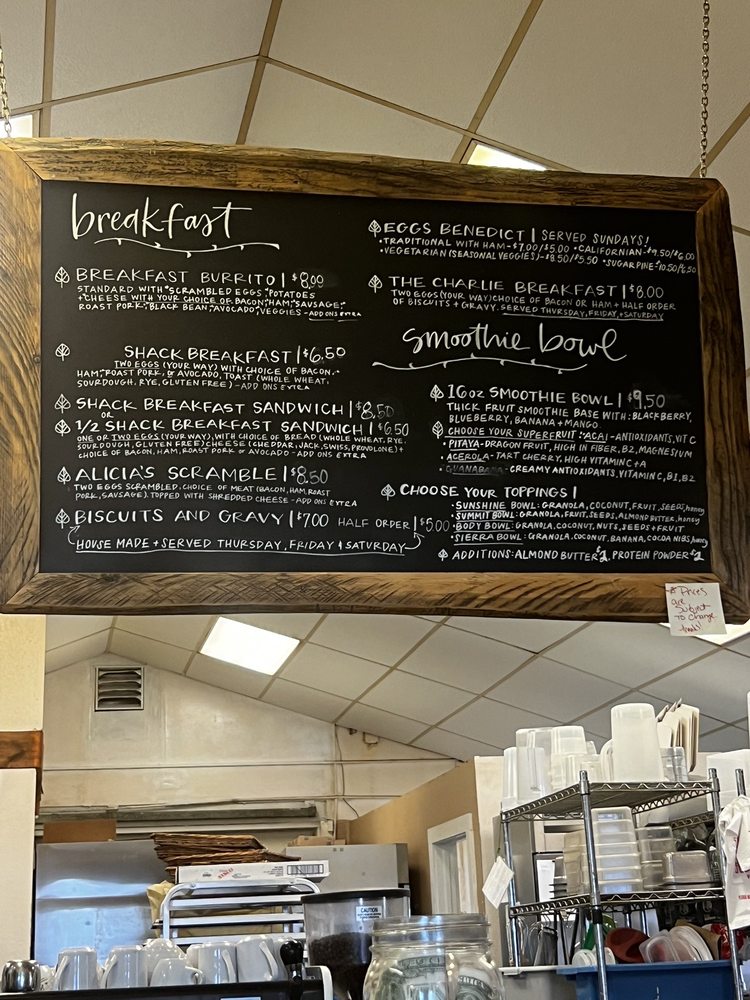 breakfast
BREAKFAST BURRITO | $8.00
STANDARD WITH: SCRAMBLED EGGS, POTATOES
+CHEESE WITH YOUR CHOICE OF BACON, HAM, SAUSAGE,
ROAST PORK, BLACK BEAN, AVOCADO, VEGGIES - ADD ONS EXTRA
SHACK BREAKFAST | $6.50
TWO EGGS (YOUR WAY) WITH CHOICE OF BACON,
HAM, ROAST PORK, OR AVOCADO, TOAST (WHOLE WHEAT,
SOURDOUGH, RYE, GLUTEN FREE) - ADD ONS EXTRA
SHACK BREAKFAST SANDWICH | $8.50
OR
1/2 SHACK BREAKFAST SANDWICH | $6.50
ONE OR TWO EGGS (YOUR WAY), WITH CHOICE OF BREAD (WHOLE WHEAT, RYE,
SOURDOUGH, GLUTEN FREE) CHEESE (CHEDDAR, JACK, SWISS, PROVOLONE) +
CHOICE OF BACON, HAM, ROAST PORK OR AVOCADO - ADD ONS EXTRA
ALICIA'S SCRAMBLE | $8.50
TWO EGGS SCRAMBLED, CHOICE OF MEAT (BACON, HAM, ROAST
PORK, SAUSAGE). TOPPED WITH SHREDDED CHEESE - ADD ONS EXTRA
BISCUITS AND GRAVY | $7.00 HALF ORDER | $5.00
HOUSE MADE + SERVED THURSDAY, FRIDAY + SATURDAY
EGGS BENEDICT | SERVED SUNDAYS!
• TRADITIONAL WITH HAM - $7.00/$5.00 • CALIFORNIAN - $9.50/$6.00
• VEGETARIAN (SEASONAL VEGGIES) - $8.50/$5.50 • SUGARPINE - 10.50/6.50
THE CHARLIE BREAKFAST | $8.00
TWO EGGS (YOUR WAY) CHOICE OF BACON OR HAM + HALF ORDER
OF BISCUITS + GRAVY. SERVED THURSDAY, FRIDAY, + SATURDAY
smoothie bowl
16oz SMOOTHIE BOWL | $9.50
THICK FRUIT SMOOTHIE BASE WITH: BLACKBERRY,
BLUEBERRY, BANANA + MANGO.
CHOOSE YOUR SUPERFRUIT: • ACAI - ANTIOXIDANTS, VIT C
• PITAYA - DRAGON FRUIT, HIGH IN FIBER, B2, MAGNESIUM
• ACEROLA - TART CHERRY, HIGH VITAMIN C + A
• GUANABANA - CREAMY ANTIOXIDANTS, VITAMIN C, B1, B2
CHOOSE YOUR TOPPINGS |
• SUNSHINE BOWL: GRANOLA, COCONUT, FRUIT, SEEDS, honey
• SUMMIT BOWL: GRANOLA, FRUIT, SEEDS, ALMOND BUTTER, honey
• BODY BOWL: GRANOLA, COCONUT, NUTS, SEEDS + FRUIT
• SIERRA BOWL: GRANOLA, COCONUT, BANANA, COCOA NIBS, honey
ADDITIONS: ALMOND BUTTER $1, PROTEIN POWDER $1
* Prices
are
Subject
To change
CAUTION